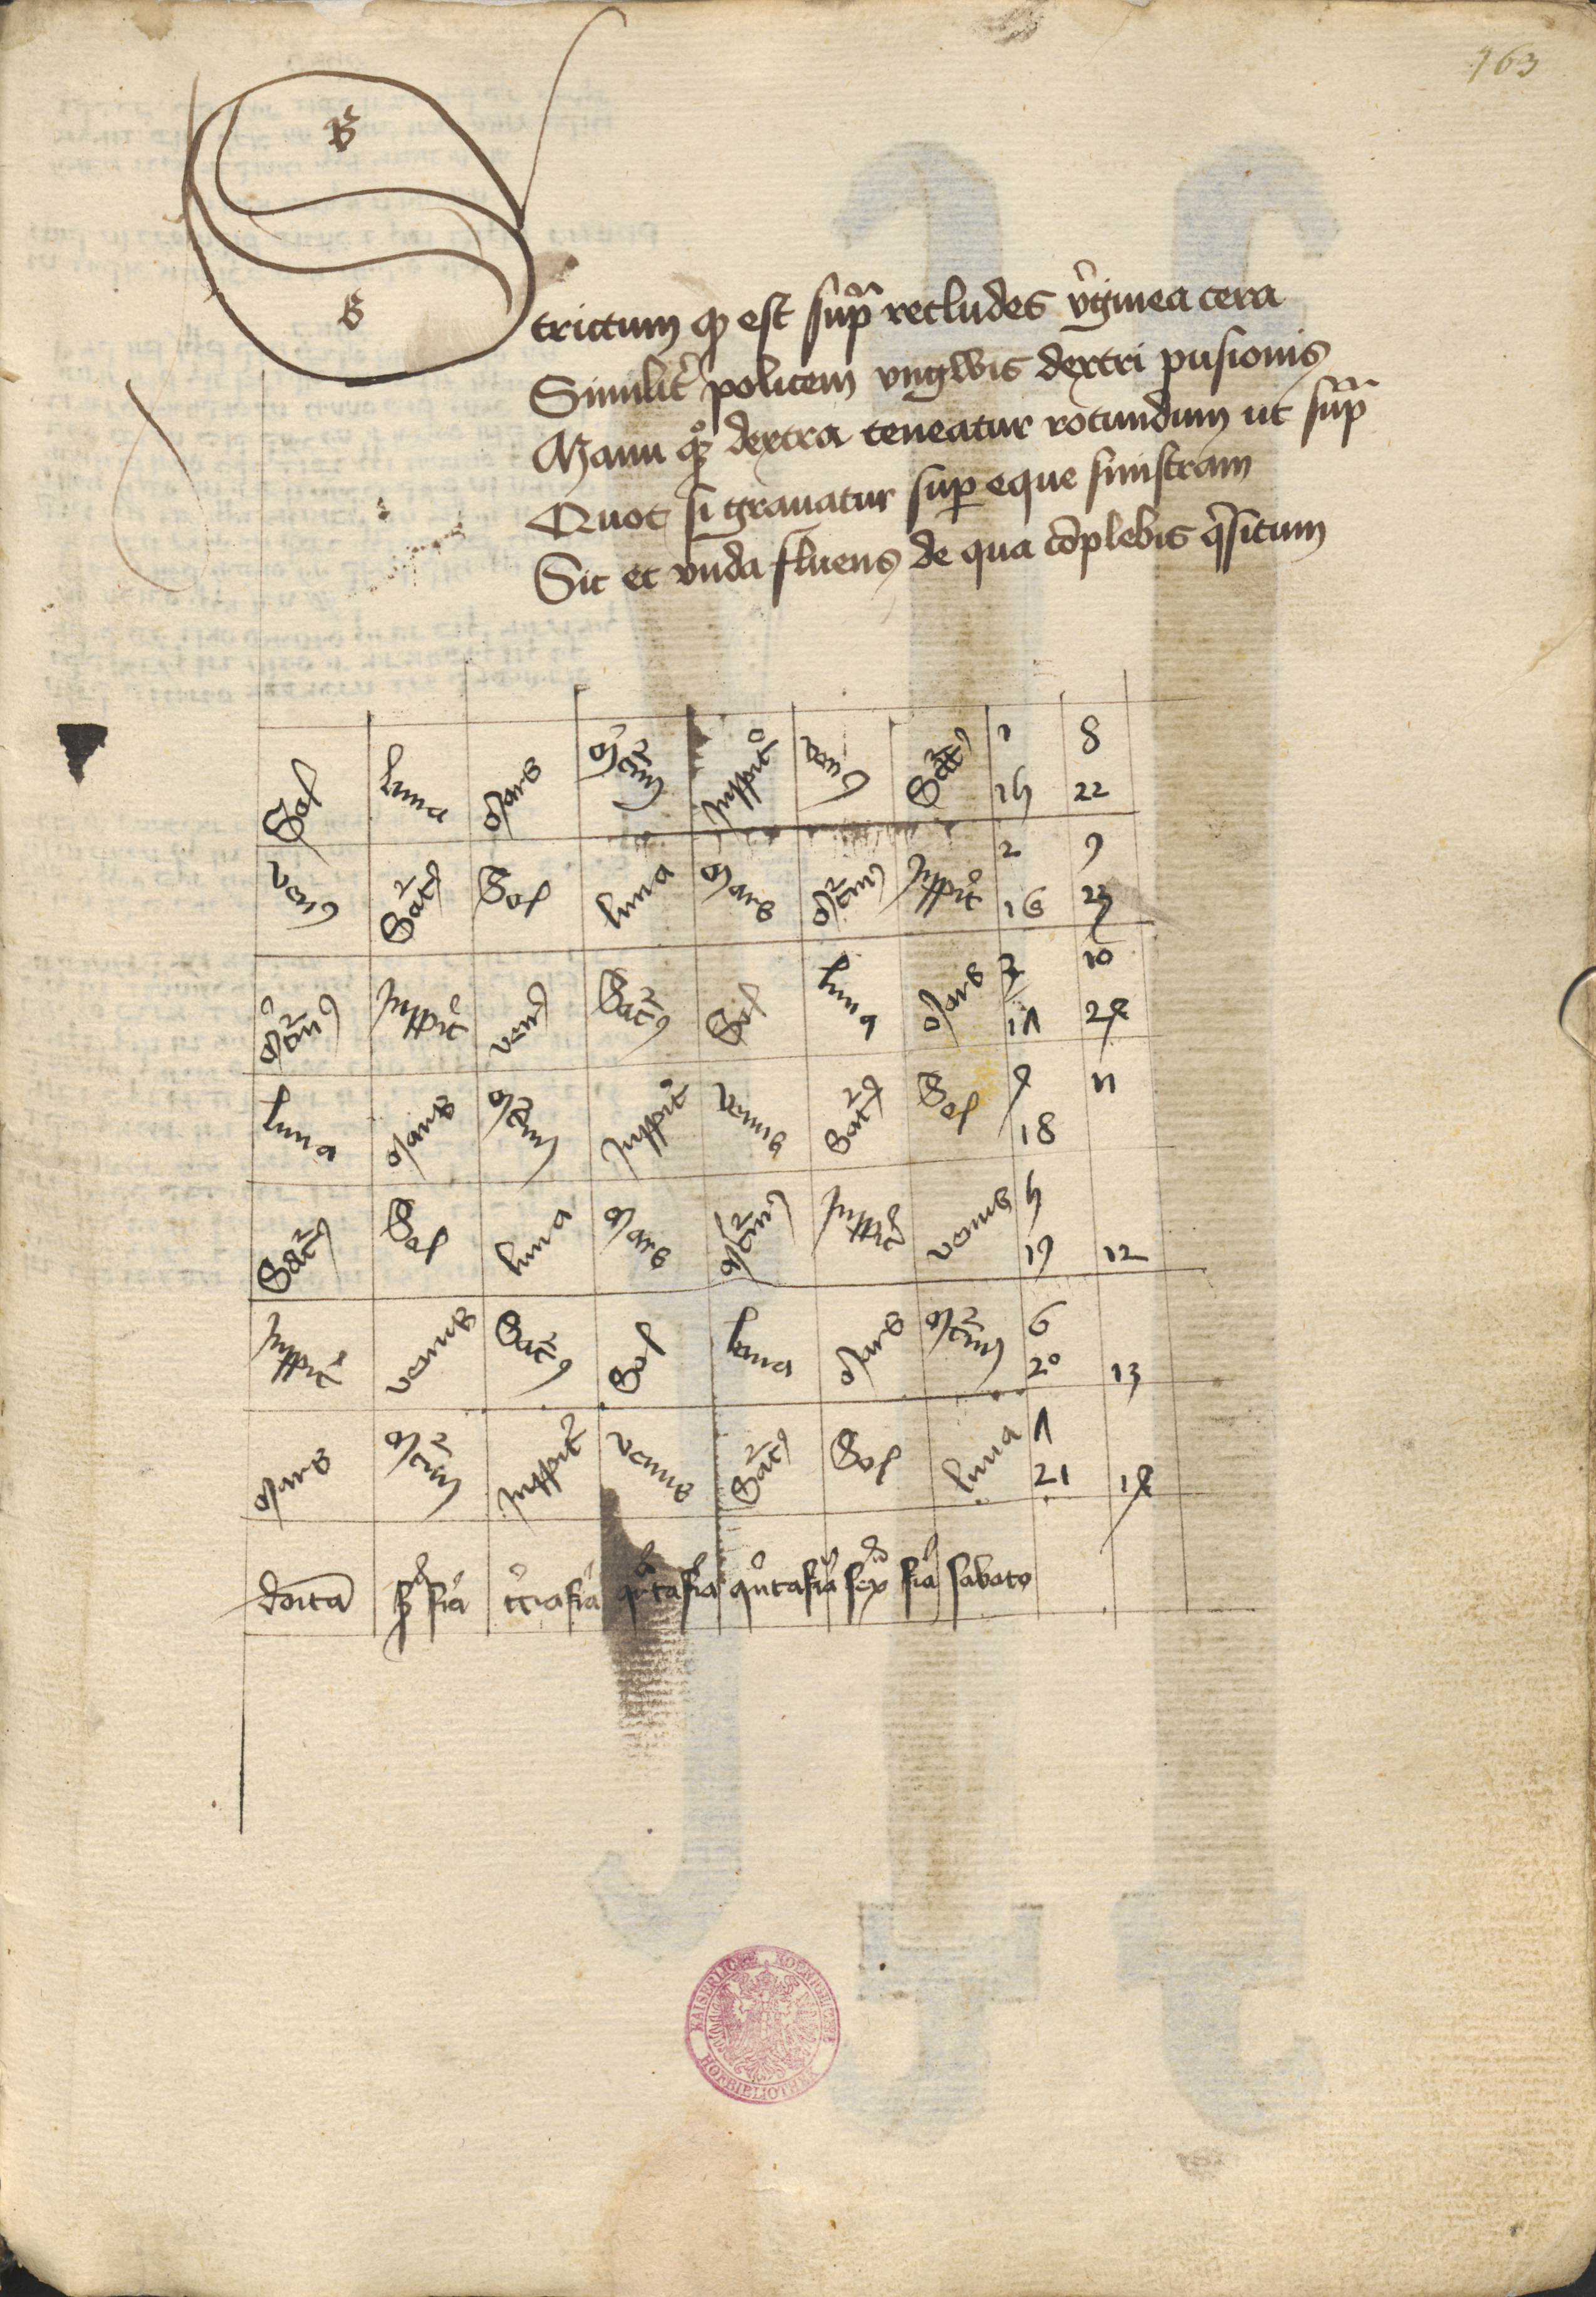 163
S
S
trictum qd est supra recludes virginea cera
Similiter policem vngwis dextri pusionis
Manu quoque dextra teneatur rotundum ut supra
Quot si grauatur super eque sinistram
Sic et vnda fluens de qua complebis quesitum
Sol luna Mars Mercurius Juppiter venus Saturnus 1 8
15 22
venus Saturnus Sol luna Mars Mercurius Juppiter 2 9
16 23
Mercurius Juppiter venus Saturnus Sol luna Mars 3 10
17 24
luna Mars Mercurius Juppiter venus Saturnus Sol 4 11
18
Saturnus Sol luna Mars Mercurius Juppiter venus 5
19 12
Juppiter venus Saturnus Sol luna Mars Mercurius 6
20 13
Mars Mercurius Juppiter venus Saturnus Sol luna 7
21 14
dominica secunda feria tercia feria quarta feria quinta feria sexta feria sabato
KAISERLICHE KOENIGLICHE HOFBIBLIOTHEK